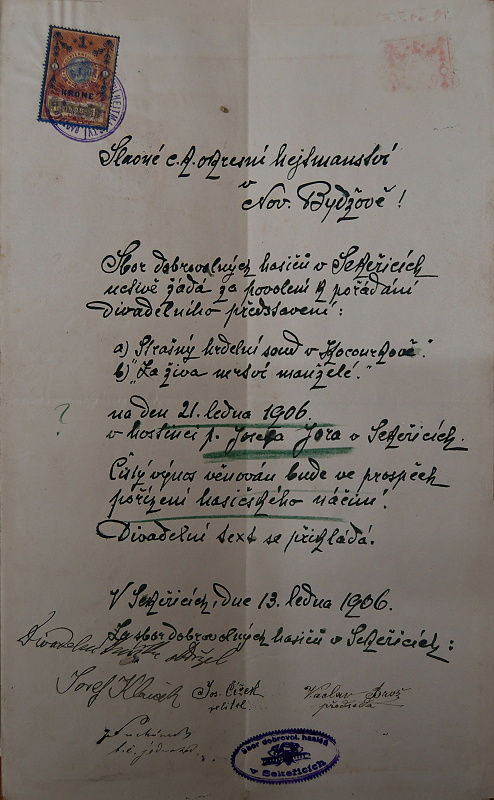 1
KRONE
Slavné c.k. okresní hejtmanství
v
Nov. Bydžově!
Sbor dobrovolných hasičů v Sekeřicích
uctivě žádá za povolení k pořádání
divadelního představení:
a) Strašný hrdelní soud v Kocourkově."
b) "Za živa mrtví manželé."
?
na den 21. ledna 1906.
v hostinci p. Josefa Jóra v Sekeřicích.
Čistý výnos věnován bude ve prospěch
pořízení hasičského náčiní.
Divadelní text se přikládá.
V Sekeřicích, dne 13. ledna 1906.
Za sbor dobrovolných hasičů v Sekeřicích:
Divadelní obdržel
Josef
Jos. Čížek
velitel
Václav Brož
předseda
t.č. jednatel
Sbor dobrovol. hasičů
v Sekeřicích